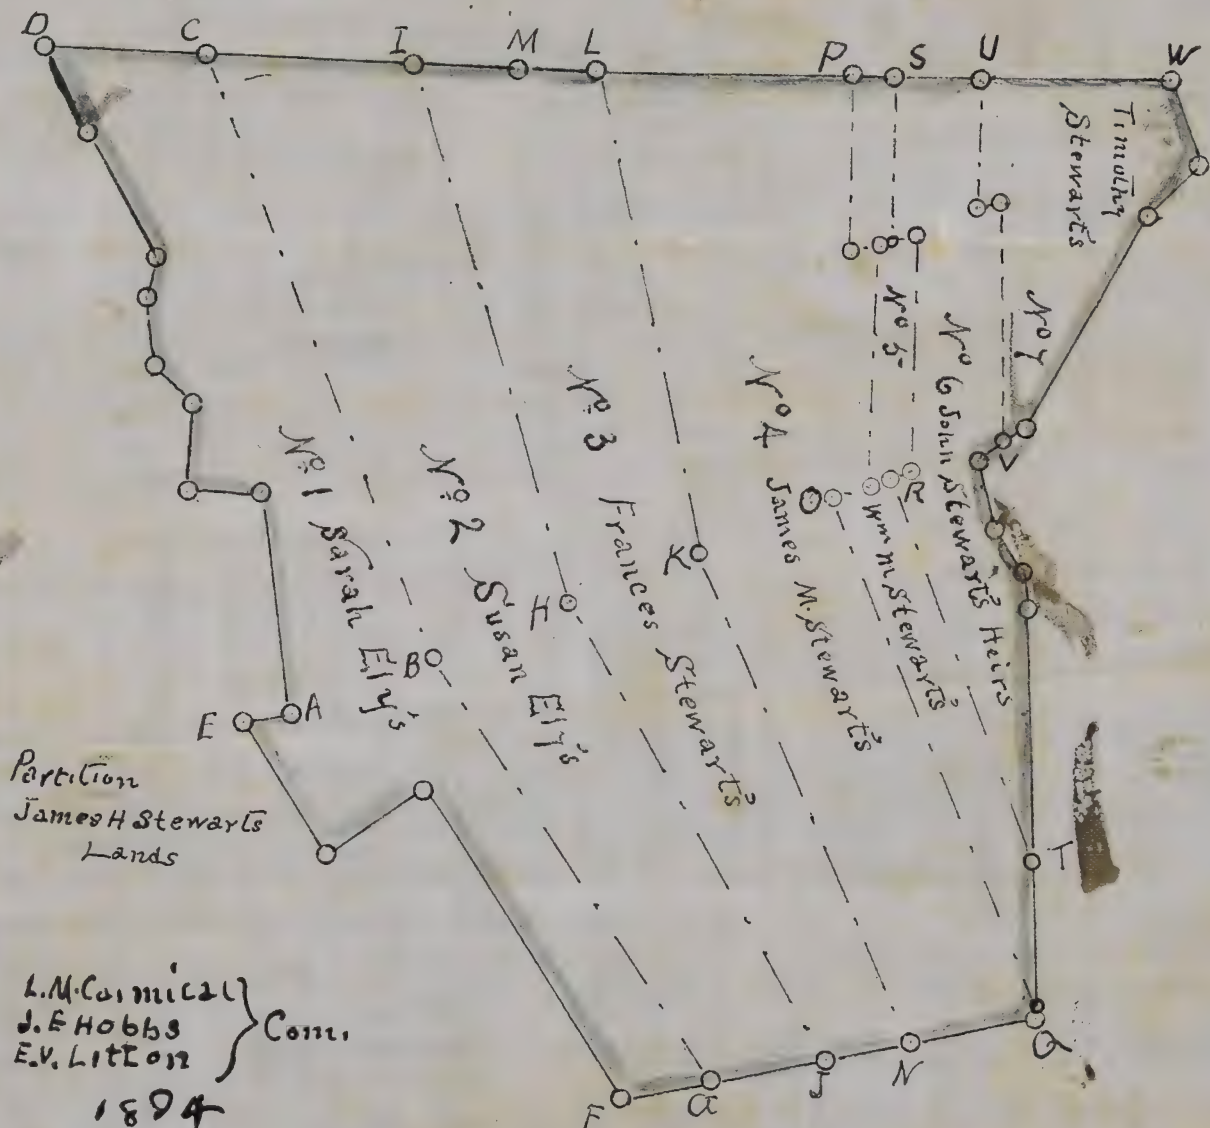 D C I M L P S U W
Timothy
Stewarts
No 7
No 5
No 6 John Stewarts Heirs
No 4 James M. Stewarts
Wm M Stewarts
No 3 Frances Stewarts
No 2 Susan Ely's
No 1 Sarah Ely's
V
R
O
K
H
B
A
E
T
Partition
James H Stewarts
Lands
Q
N
J
G
F
L.M. Carmical
J. E Hobbs
E.V. Litton
Com.
1894